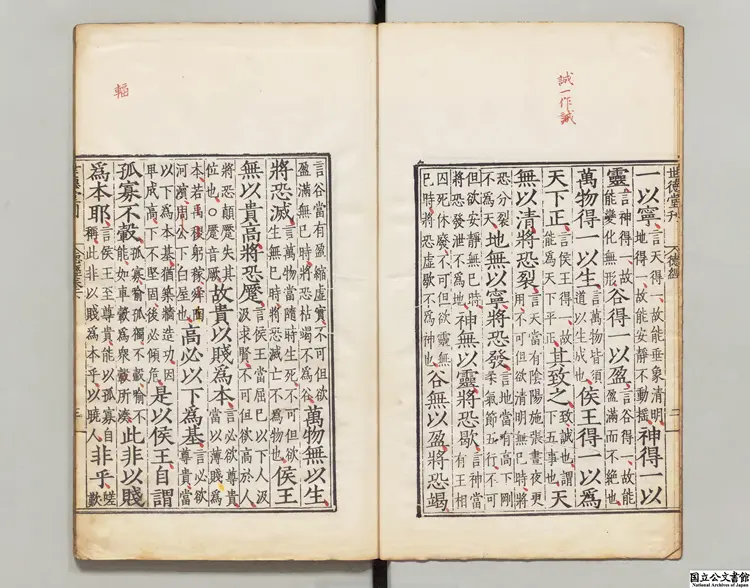 誠一作誡
世德堂刊
德經
二
一以寧言天得一故能垂象清明地得一故能安靜不動搖神得一以
靈言神得一故能變化無形谷得一以盈言谷得一故能盈滿而不絶也
萬物得一以生言萬物皆須道以生成也侯王得一以爲
天下正言侯王得一故能爲天下平正其致之致誠也謂下五事也天
無以清將恐裂言天當有陰陽施張晝夜更用不可但欲清明無巳時將
恐分裂不爲天地無以寧將恐發言地當有高下剛柔氣節五行不可
但欲安靜無巳時將恐發泄不爲地神無以靈將恐歇言神當有王相
囚死休廢不可但欲靈無巳時將恐虛歇不爲神也谷無以盈將恐竭
輻
言谷當有盈縮虛實不可但欲盈滿無巳時將恐枯竭不爲谷萬物無以生
將恐滅言萬物當隨時生死不可但欲生無巳時將恐滅亡不爲物也侯王
無以貴高將恐蹷言侯王當屈巳以下人汲汲求賢不可但欲高於人
將恐顛蹷失其位也○蹷音厥故貴以賤爲本言必欲尊貴當以薄賤爲
本若禹稷躬稼舜陶河濱周公下白屋也高必以下爲基言必欲尊貴當
以下爲本基猶築墻造功因卑成高下不堅固後必傾危是以侯王自謂
孤寡不轂孤寡喻孤獨不轂喻不能如車轂爲衆轂所湊此非以賤
爲本耶言侯王至尊貴能以孤寡自稱此非以賤爲本乎以曉人非乎嗟歎
国立公文書館
National Archives of Japan